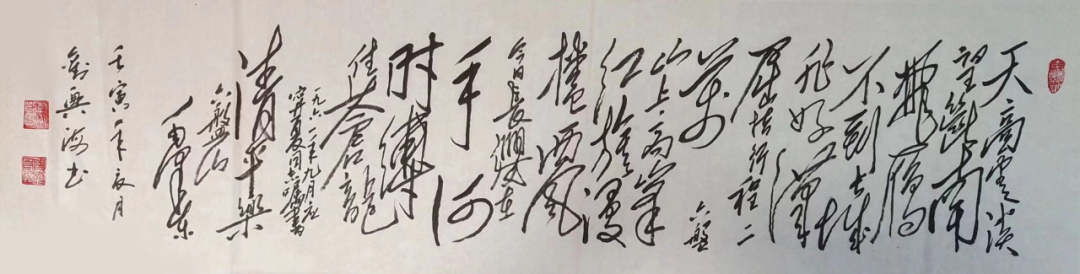 天高雲淡
望斷南
飛雁
不到長城
非好漢
屈指行程二
萬
六盤
山上高峯
紅旗漫
捲西風
今日長纓在
手何
時縛
住蒼龍
一九六一年九月應
寧夏同志囑書
清平樂
六盤山
毛澤東
壬寅年夏月
劉興海书